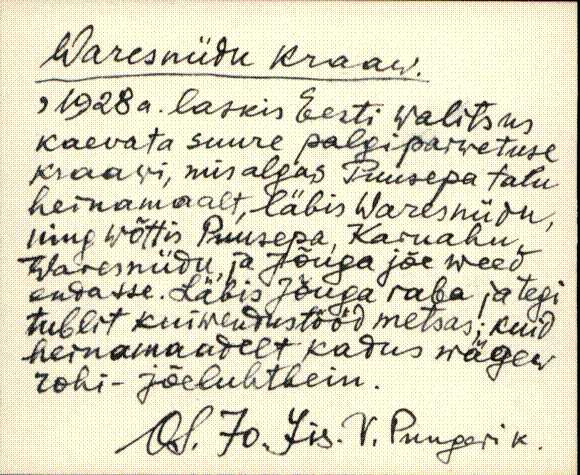 Waresniidu kraaw.
, 1928 a. laskis Eesti walitsus
kaevata suure palgiparwetuse
kraawi, mis algas Puusepa talu
heinamaalt, läbis Waresniidu,
ning wõttis Puusepa, Karuahu,
Waresniidu, ja Jõuga jõe weed
endasse. Läbis Jõuga raba ja tegi
tublit kuiwendustööd metsas; kuid
heinamaadelt kadus wägew
rohi - jõeluhthein.
Jo. Jis. V. Pungerik.